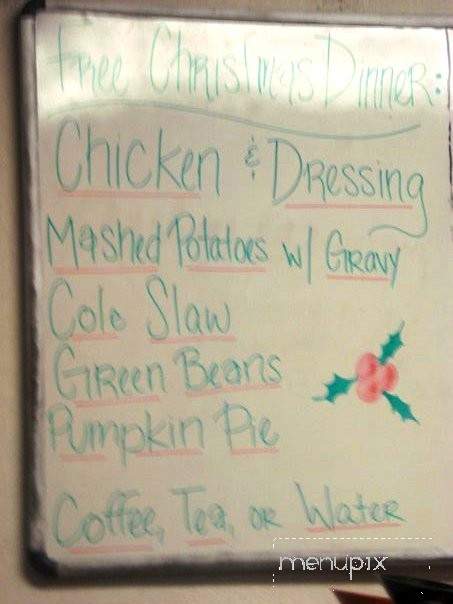 Free Christmas Dinner:
Chicken & Dressing
Mashed Potatoes w/ Gravy
Cole Slaw
Green Beans
Pumpkin Pie
Coffee, Tea, or Water
menupix